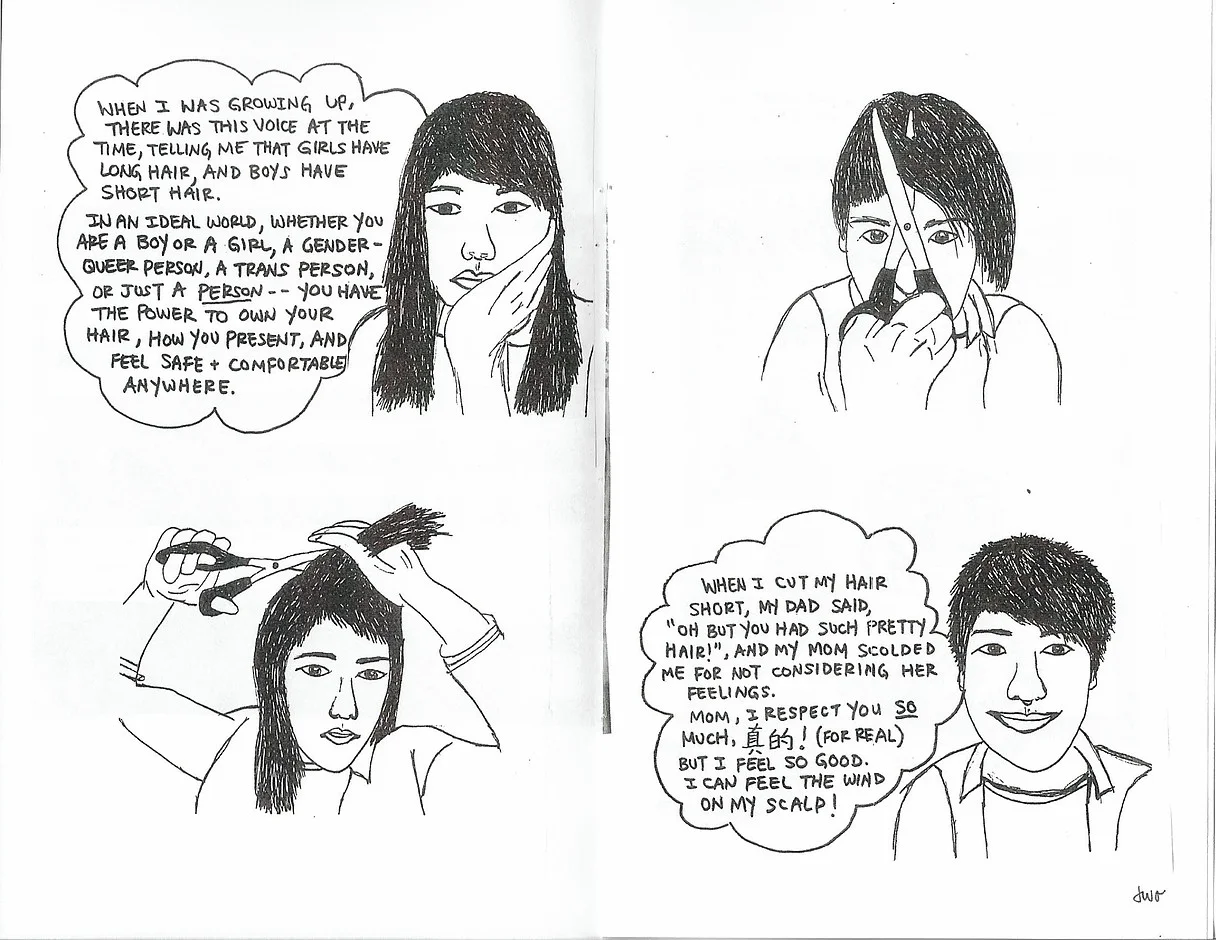 WHEN I WAS GROWING UP,
THERE WAS THIS VOICE AT THE
TIME, TELLING ME THAT GIRLS HAVE
LONG HAIR, AND BOYS HAVE
SHORT HAIR.
IN AN IDEAL WORLD, WHETHER YOU
ARE A BOY OR A GIRL, A GENDER-
QUEER PERSON, A TRANS PERSON,
OR JUST A PERSON -- YOU HAVE
THE POWER TO OWN YOUR
HAIR, HOW YOU PRESENT, AND
FEEL SAFE + COMFORTABLE
ANYWHERE.
WHEN I CUT MY HAIR
SHORT, MY DAD SAID,
"OH BUT YOU HAD SUCH PRETTY
HAIR!", AND MY MOM SCOLDED
ME FOR NOT CONSIDERING HER
FEELINGS.
MOM, I RESPECT YOU SO
MUCH, 真的! (FOR REAL)
BUT I FEEL SO GOOD.
I CAN FEEL THE WIND
ON MY SCALP!